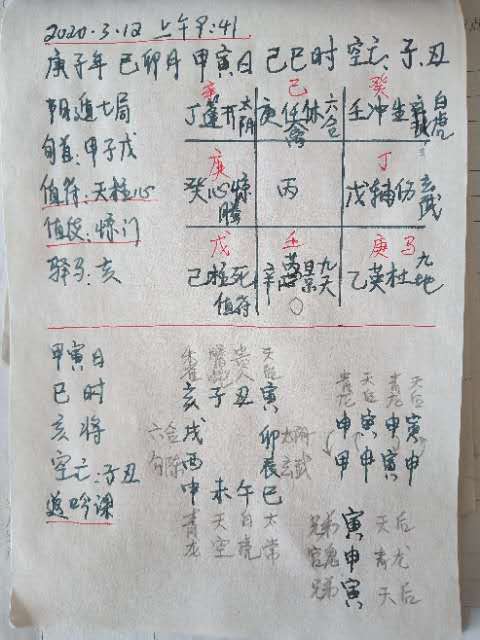 2020.3.12 上午9:41
庚子年 己卯月 甲寅日 己巳时 空亡:子.丑
七局
旬首:甲子戊
值符:天柱心
值使:惊门
驿马:亥
己 癸
丁蓬开太阴 庚任休六合 壬冲生白虎
庚 丁
癸心惊 丙 戊辅伤玄武
戊 壬 庚马
己柱死值符 辛 景九天 乙英杜九地
甲寅日
巳时
亥将
空亡:子丑
返吟课
天后
亥 子 丑 寅
戌 卯 太阴
六合 酉 辰 玄武
勾陈 申 未 午 巳
青龙 天空 白虎 太常
青龙 天后 青龙 天后
申 寅 申 寅
甲 申 寅 申
兄弟 寅 天后
官鬼 申 青龙
兄弟 寅 天后